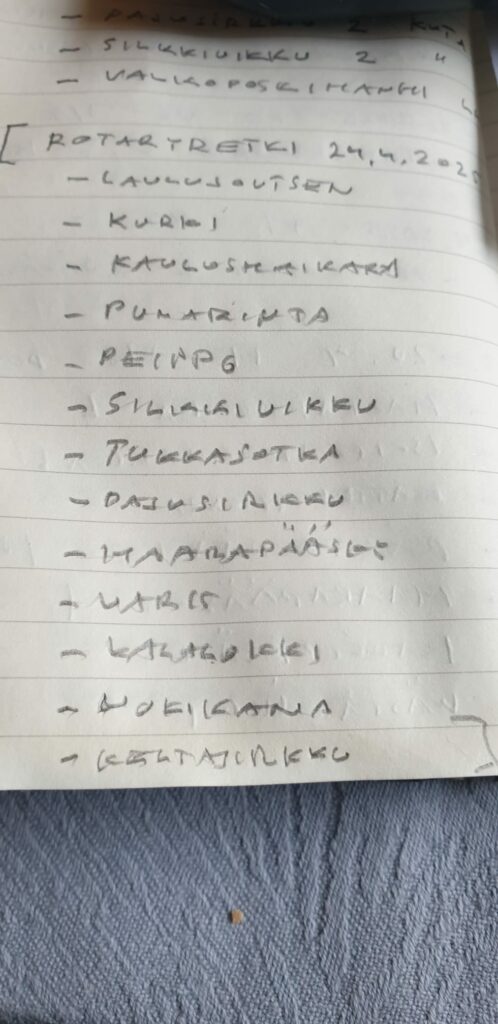 - PAJUSIRKKU 2 KUT,
- SILKKIUIKKU 2 "
- VALKOPOSKIHANHI
[ ROTARYRETKI 24.4.2025
- LAULUJOUTSEN
- KURKI
- KAULUSHAIKARA
- PUNARINTA
- PEIPPO
- SILKKIUIKKU
- TUKKASOTKA
- PAJUSIRKKU
- HAARAPÄÄSKY
- VARIS
- KALALOKKI
- NOKIKANA
- KELTASIRKKU ]